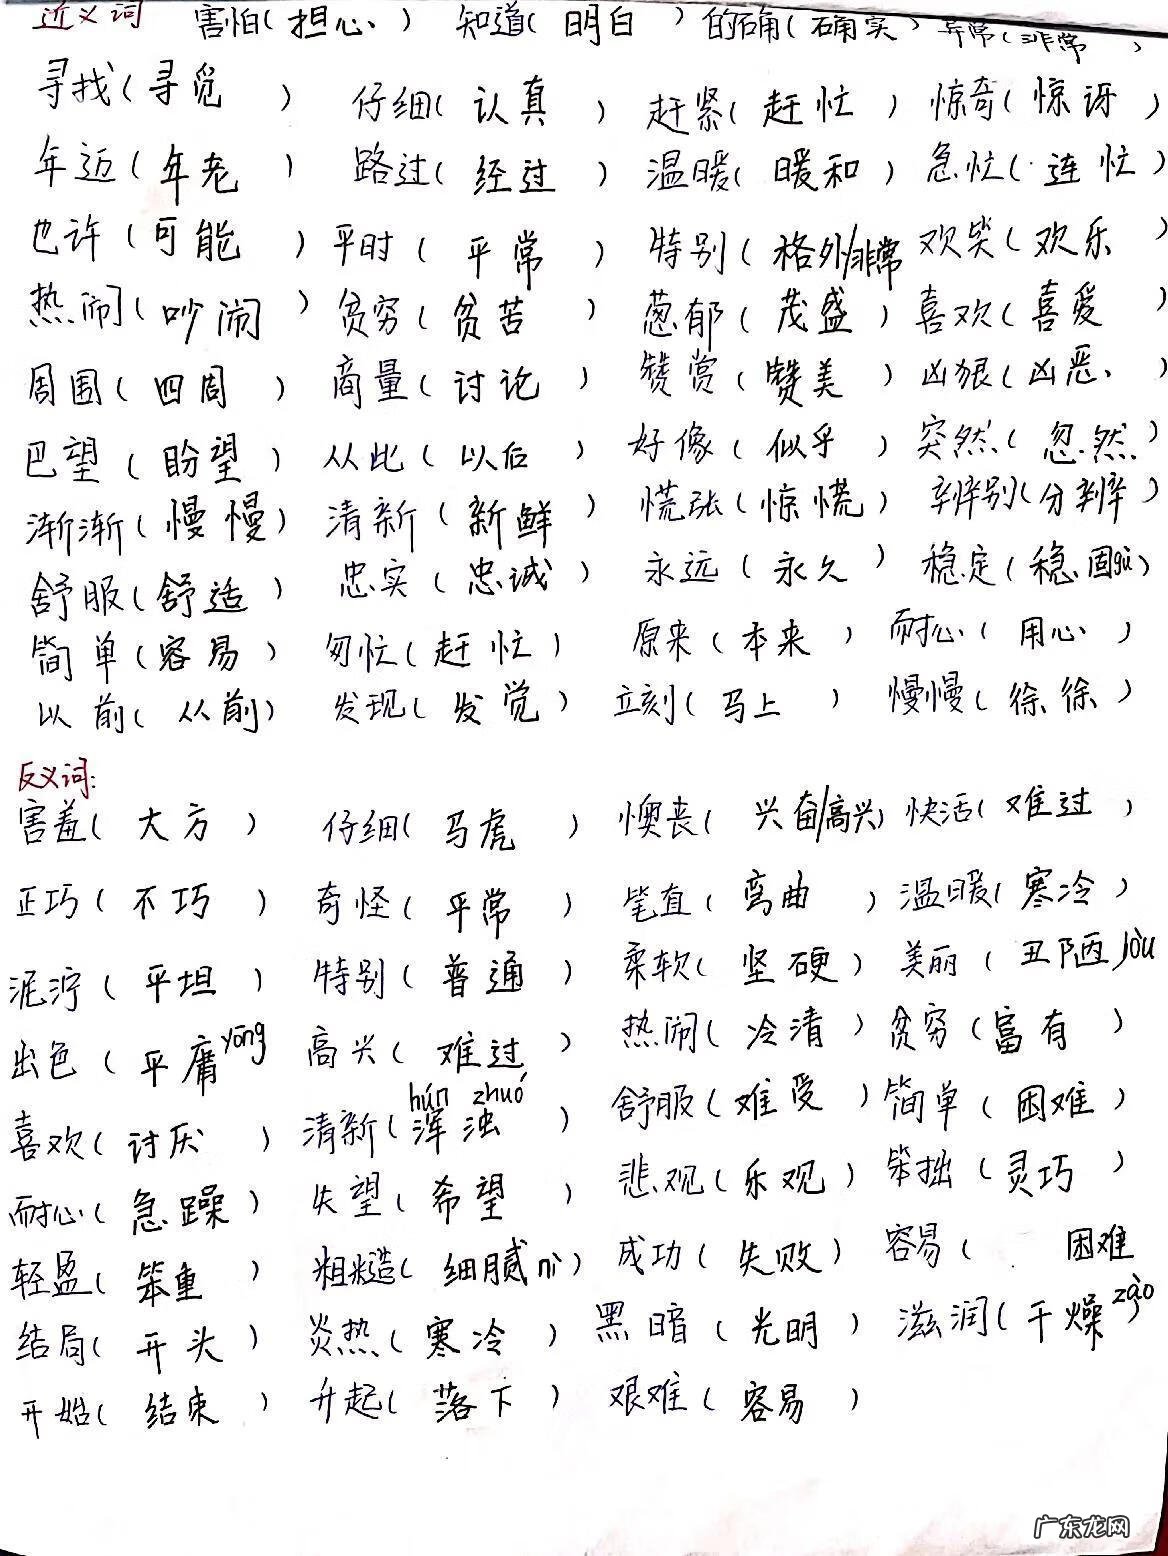 近义词 害怕(担心) 知道(明白) 的确(确实) 异常(非常)
寻找(寻觅) 仔细(认真) 赶紧(赶忙) 惊奇(惊讶)
年迈(年老) 路过(经过) 温暖(暖和) 急忙(连忙)
也许(可能) 平时(平常) 特别(格外/非常) 欢笑(欢乐)
热闹(吵闹) 贫穷(贫苦) 葱郁(茂盛) 喜欢(喜爱)
周围(四周) 商量(讨论) 赞赏(赞美) 凶狠(凶恶)
巴望(盼望) 从此(以后) 好像(似乎) 突然(忽然)
渐渐(慢慢) 清新(新鲜) 慌张(惊慌) 辨别(分辨)
舒服(舒适) 忠实(忠诚) 永远(永久) 稳定(稳固gù)
简单(容易) 匆忙(赶忙) 原来(本来) 耐心(用心)
以前(从前) 发现(发觉) 立刻(马上) 慢慢(徐徐)
反义词:
害羞(大方) 仔细(马虎) 懊丧(兴奋/高兴) 快活(难过)
正巧(不巧) 奇怪(平常) 笔直(弯曲) 温暖(寒冷)
泥泞(平坦) 特别(普通) 柔软(坚硬) 美丽(丑陋lòu
出色(平庸yōng 高兴(难过) 热闹(冷清) 贫穷(富有)
喜欢(讨厌) 清新(浑浊hún zhuó) 舒服(难受) 简单(困难)
耐心(急躁) 失望(希望) 悲观(乐观) 笨拙(灵巧)
轻盈(笨重) 粗糙(细腻nì) 成功(失败) 容易(困难
结局(开头) 炎热(寒冷) 黑暗(光明) 滋润(干燥zào)
开始(结束) 升起(落下) 艰难(容易)
广东龙网